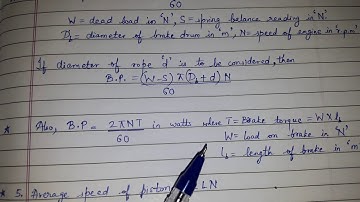 60
W = dead load in 'N', S = spring balance reading in 'N'.
D_b = diameter of brake drum in 'm', N = speed of engine in 'r.p.m'
If diameter of rope 'd' is to be considered, then
B.P. = (W-S) π (D_b + d) N
60
* Also, B.P = 2πNT in watts where T = Brake torque = W x l_b
60
W = load on brake in 'N'
l_b = length of brake in 'm'
* 5. Average speed of piston LN